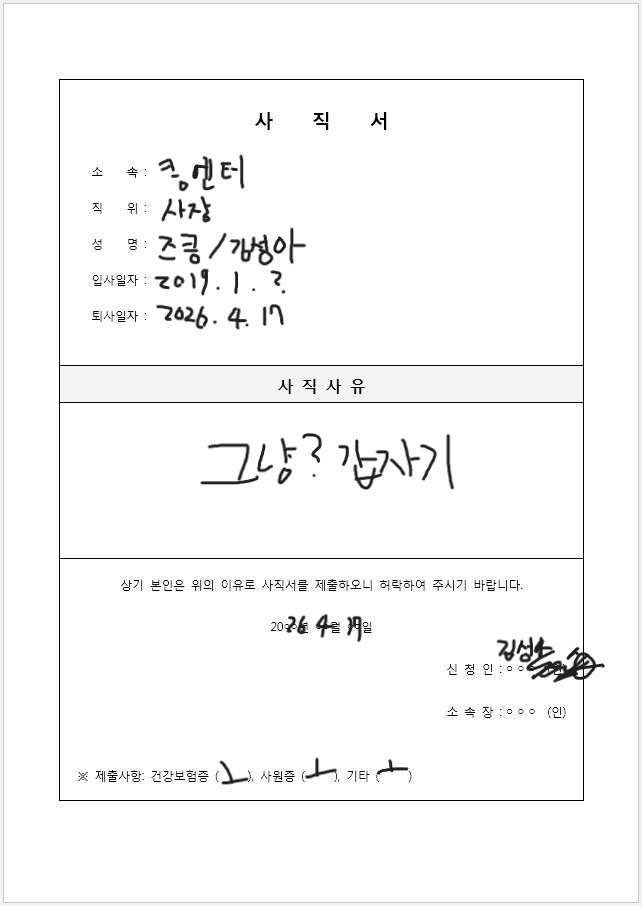 사 직 서
소 속 : 킁엔터
직 위 : 사장
성 명 : 즈콩/김성아
입사일자 : 2019. 1. 2.
퇴사일자 : 2026. 4. 17
사 직 사 유
그냥? 갑자기
상기 본인은 위의 이유로 사직서를 제출하오니 허락하여 주시기 바랍니다.
2026년 4월 17일
신 청 인 : 김성
소 속 장 : ㅇ ㅇ ㅇ (인)
※ 제출사항: 건강보험증 ( ), 사원증 ( ), 기타 ( )